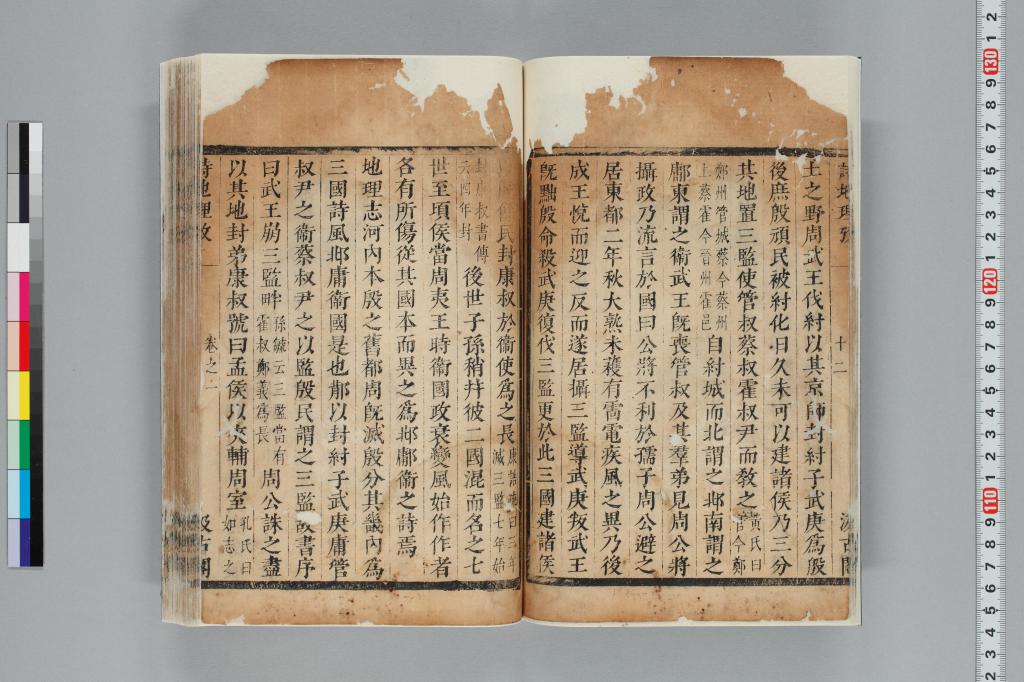 詩地理攷 十二 汲古閣
土之野周武王伐紂以其京師封紂子武庚爲殷
後庶殷頑民被紂化日久未可以建諸侯乃三分
其地置三監使管叔蔡叔霍叔尹而敎之
黃氏曰
管今鄭
鄭州管城蔡今蔡州
上蔡霍今晉州霍邑
自紂城而北謂之邶南謂之
鄘東謂之衛武王旣喪管叔及其羣弟見周公將
攝政乃流言於國曰公將不利於孺子周公避之
居東都二年秋大熟未穫有雷電疾風之異乃後
成王悅而迎之反而遂居攝三監導武庚叛武王
旣黜殷命殺武庚復伐三監更於此三國建諸侯
民封康叔於衛使爲之長
康誥疏曰三年
滅三監七年始
封叔書傳
云四年封
後世子孫稍幷彼二國混而名之七
世至頃侯當周夷王時衛國政衰變風始作作者
各有所傷從其國本而異之爲邶鄘衛之詩焉
地理志河內本殷之舊都周旣滅殷分其畿內爲
三國詩風邶庸衛國是也邶以封紂子武庚庸管
叔尹之衛蔡叔尹之以監殷民謂之三監故書序
曰武王崩三監畔
孫毓云三監當有
霍叔鄭義爲長
周公誅之盡
以其地封弟康叔號曰孟侯以夾輔周室
孔氏曰
如志之
詩地理攷 卷之一 汲古閣